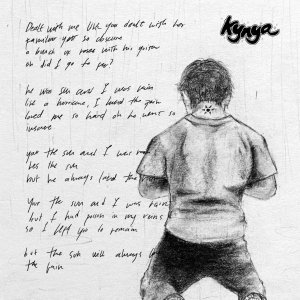 Kynya
Dealt with me like you dealt with her
so obscure
a bunch of roses with his poison
oh did I go to far?
he was sun and I was rain
like a hurricane, I loved the pain
loved me so hard oh he went so
insane
your the sun and I was
hes the sun
but he always the
Your the sun and I was rain
but I had poison in my veins
so I left you to remain
but the sun will always
the rain